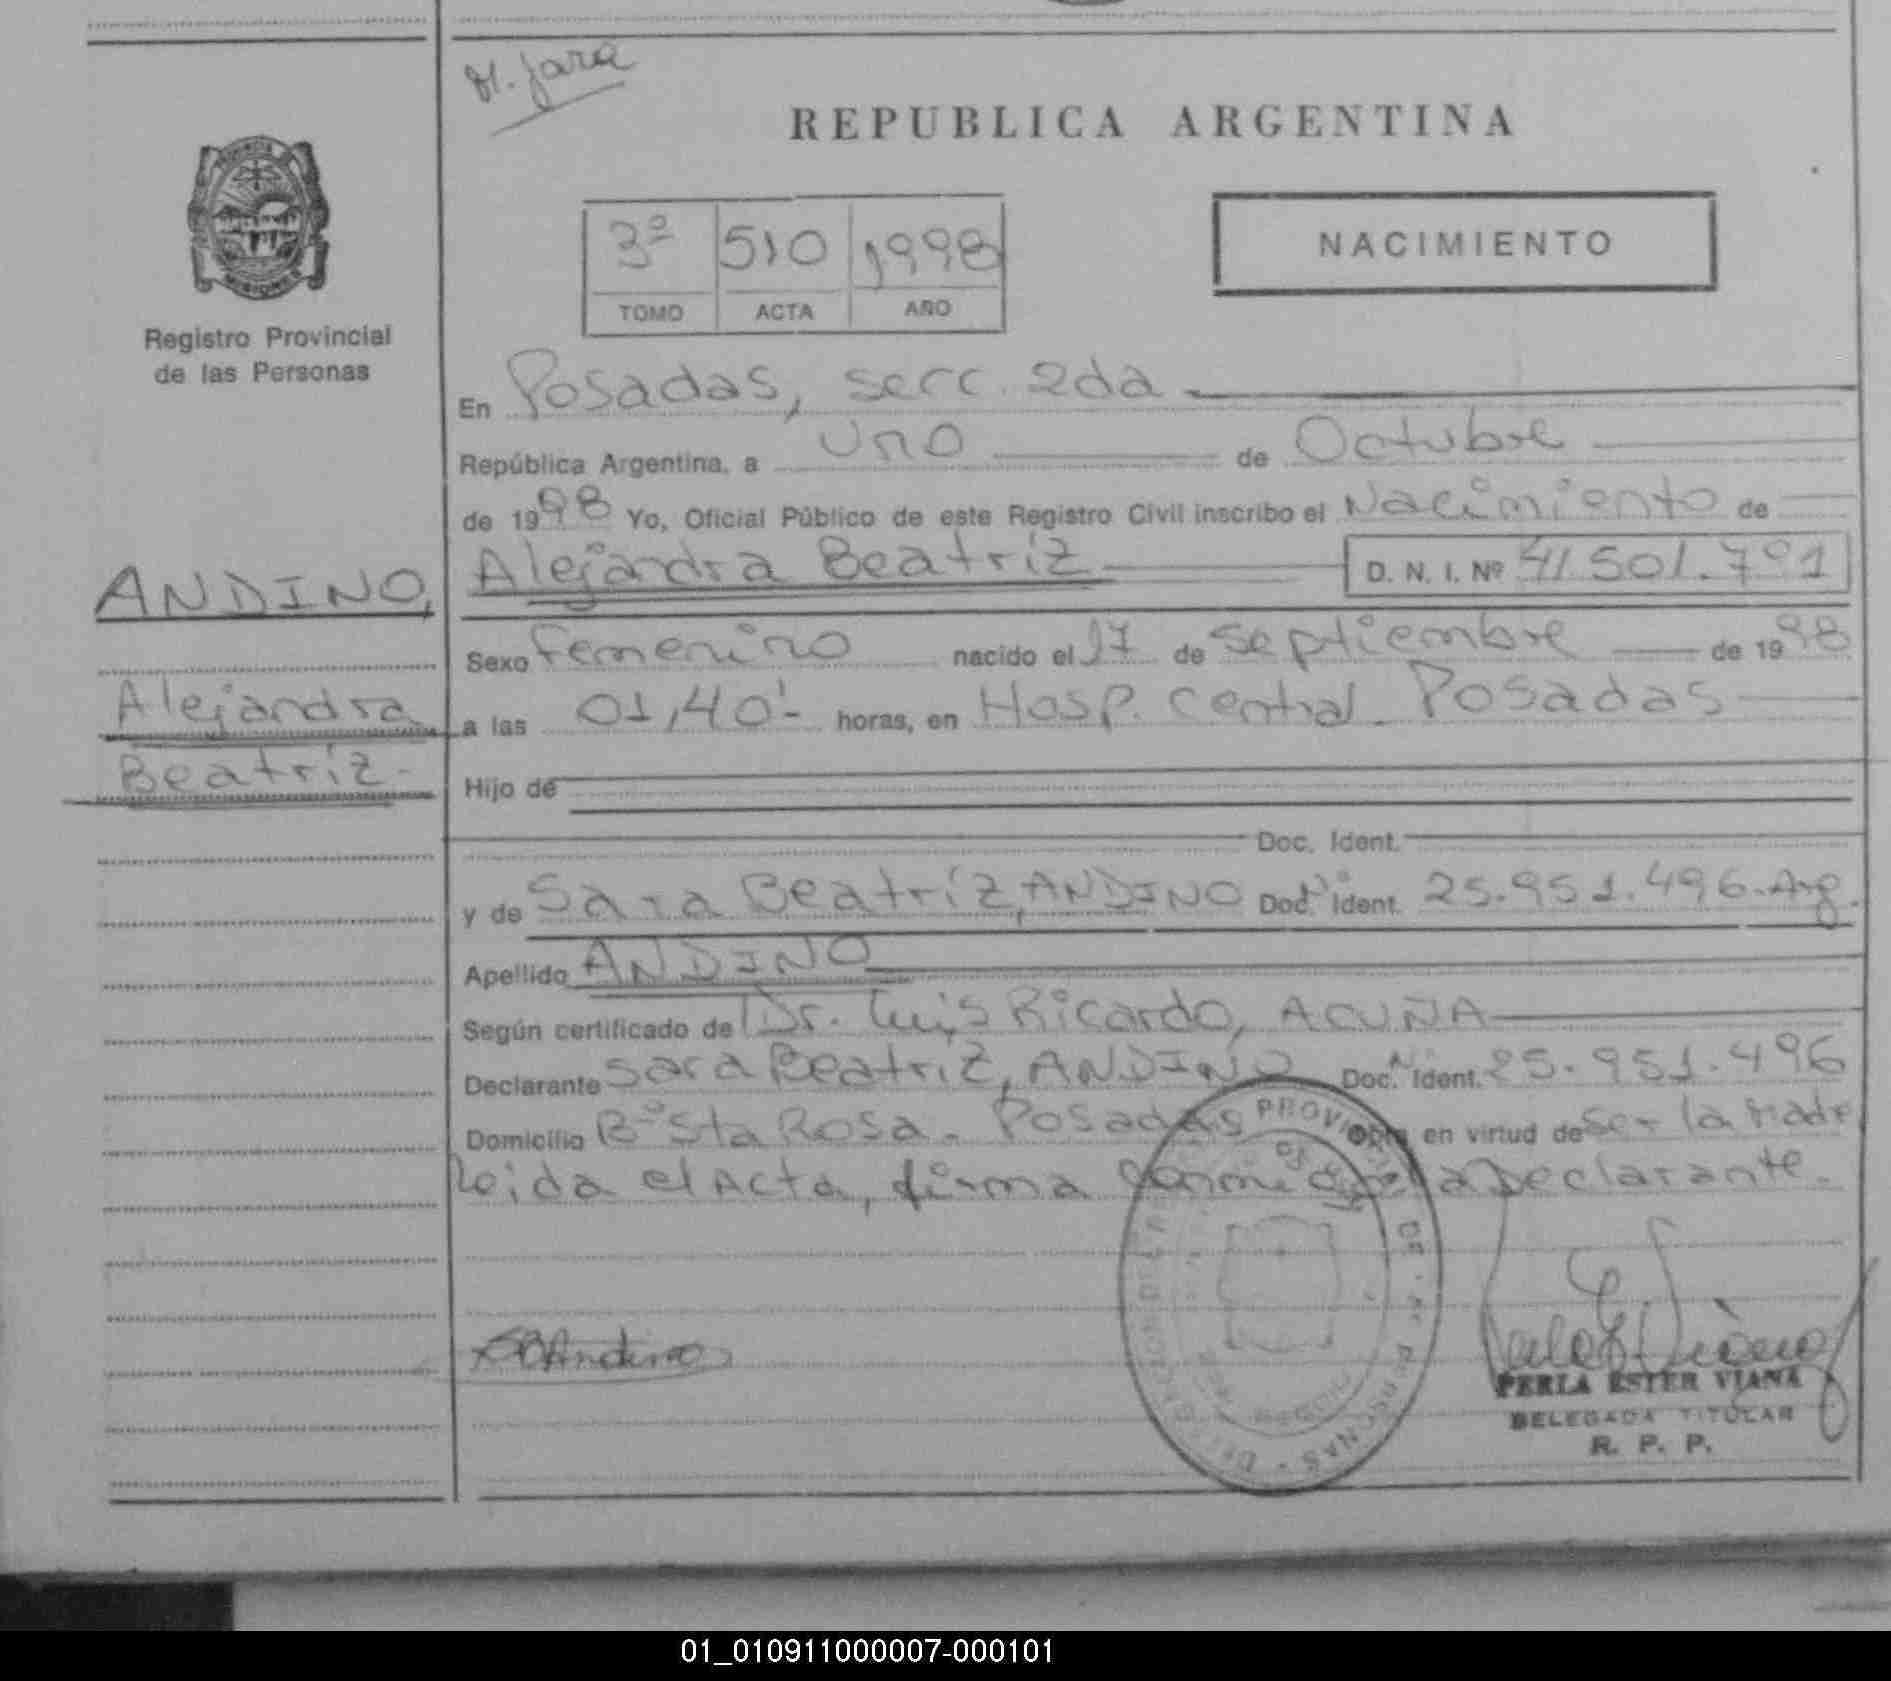 M. Jara
REPUBLICA ARGENTINA
PROVINCIA
MISIONES
3º 510 1998
TOMO ACTA AÑO
NACIMIENTO
Registro Provincial
de las Personas
En Posadas, secc. 2da
República Argentina, a Uno de Octubre
de 1998 Yo, Oficial Público de este Registro Civil inscribo el Nacimiento de
ANDINO,
Alejandra Beatríz D. N. I. Nº 41.501.791
Sexo Femenino nacido el 17 de Septiembre de 1998
Alejandra
a las 01,40'- horas, en Hosp. Central. Posadas
Beatríz.-
Hijo de
Doc. Ident.
y de Sara Beatríz, ANDINO Doc. Nº Ident. 25.951.496.Arg.
Apellido ANDINO
Según certificado de Dr. Luis Ricardo, ACUÑA
Declarante Sara Beatríz, ANDINO Doc. Nº Ident. 25.951.496
Domicilio Bº Sta Rosa. Posadas Obra en virtud de ser la Madre
Leida el Acta, firma conmigo la Declarante.
SBAndino
PERLA ESTER VIANA
DELEGADA TITULAR
R. P. P.
01_010911000007-000101